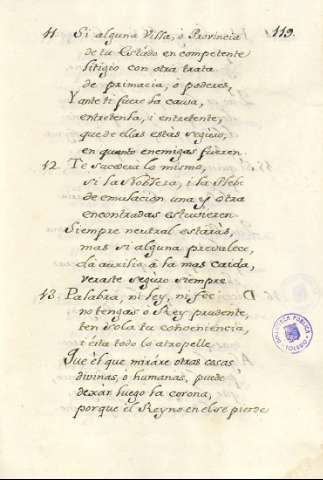 119.
41. Si alguna Villa, ò Provincia
de tu Estado en competente
litigio con otra trata
de primacia, ò poderes,
Y ante ti fuere la causa,
entretenla, i entretente,
que de ellas estàs seguro,
en quanto enemigas fueren.
42. Te sucederà lo mismo,
si la Nobleza, i la Plebe
de emulacion una y otra
encontradas estuvieren.
Siempre neutral estaràs,
mas si alguna prevalece,
da auxilio à la mas caida,
veraste seguro siempre.
43. Palabra, ni ley, ni fee
no tengas ò Rey prudente,
ten sola tu conveniencia,
i èsta todo lo atropelle.
Que èl que miràre otras cosas
divinas, ò humanas, puede
dexàr luego la corona,
porque el Reyno en èl se pierde
BIBLIOTECA PUBLICA
TOLEDO